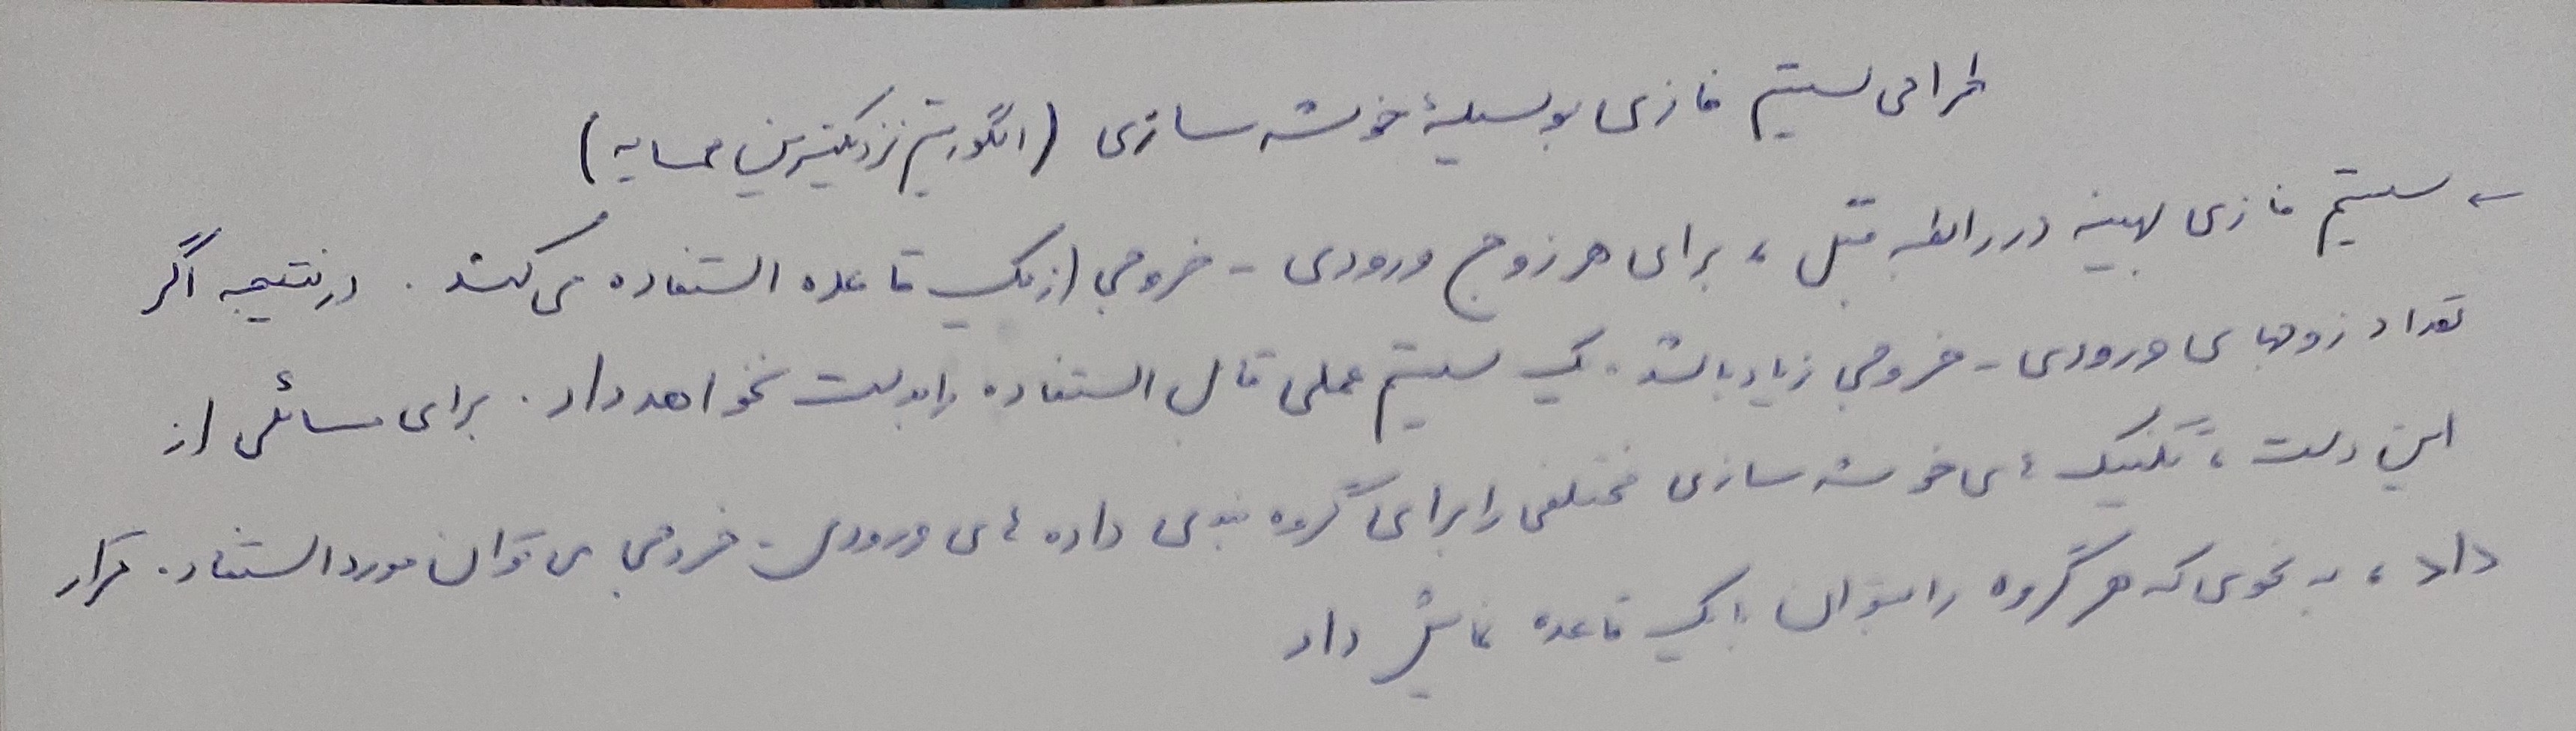 طراحی سیستم فازی بوسیلهٔ خوشه سازی (الگوریتم نزدیکترین همسایه)
← سیستم فازی بهینه در رابطه قبل ، برای هر زوج ورودی - خروجی از یک قاعده استفاده می کند . در نتیجه اگر
تعداد زوجهای ورودی - خروجی زیاد باشد ، یک سیستم عملی قابل استفاده را بدست نخواهد داد . برای مسائلی از
این دست ، تکنیک های خوشه سازی مختلفی را برای گروه بندی داده های ورودی - خروجی می توان مورد استفاده قرار
داد ، به نحوی که هر گروه را بتوان با یک قاعده نمایش داد